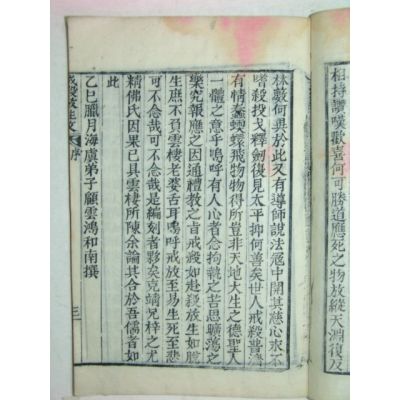 相持讚嘆歡喜何可勝道應死之物放縱天淵復反
林藪何異於此又有導師說法冦中開其慈心求不
嗜殺投戈釋劍復見太平抑何善矣世人戒殺普濟
有情蠢蝡蠉飛物物得所豈非天地大生之德聖人
一體之意乎嗚呼有人心者念拘執之苦思曠蕩之
樂究報應之因通禮教之旨戒殺如赴殺放生如脫
生庶不負雲棲老婆舌耳嗚呼戒放至易生死至悲
可不念哉可不念哉是編刻者夥矣克靖兄梓之尤
精佛氏因果已具雲棲所陳余論其合於吾儒者如
此
乙巳臘月海虞弟子顧雲鴻和南撰
戒殺放生文 序 三